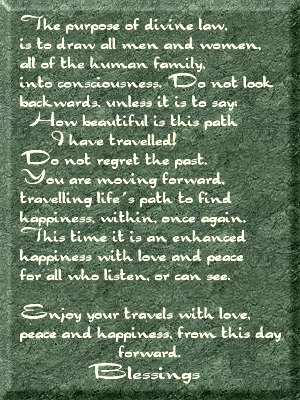 The purpose of divine law,
is to draw all men and women,
all of the human family,
into consciousness. Do not look
backwards, unless it is to say:
How beautiful is this path
I have travelled!
Do not regret the past.
You are moving forward,
travelling life's path to find
happiness, within, once again.
This time it is an enhanced
happiness with love and peace
for all who listen, or can see.
Enjoy your travels with love,
peace and happiness, from this day
forward.
Blessings